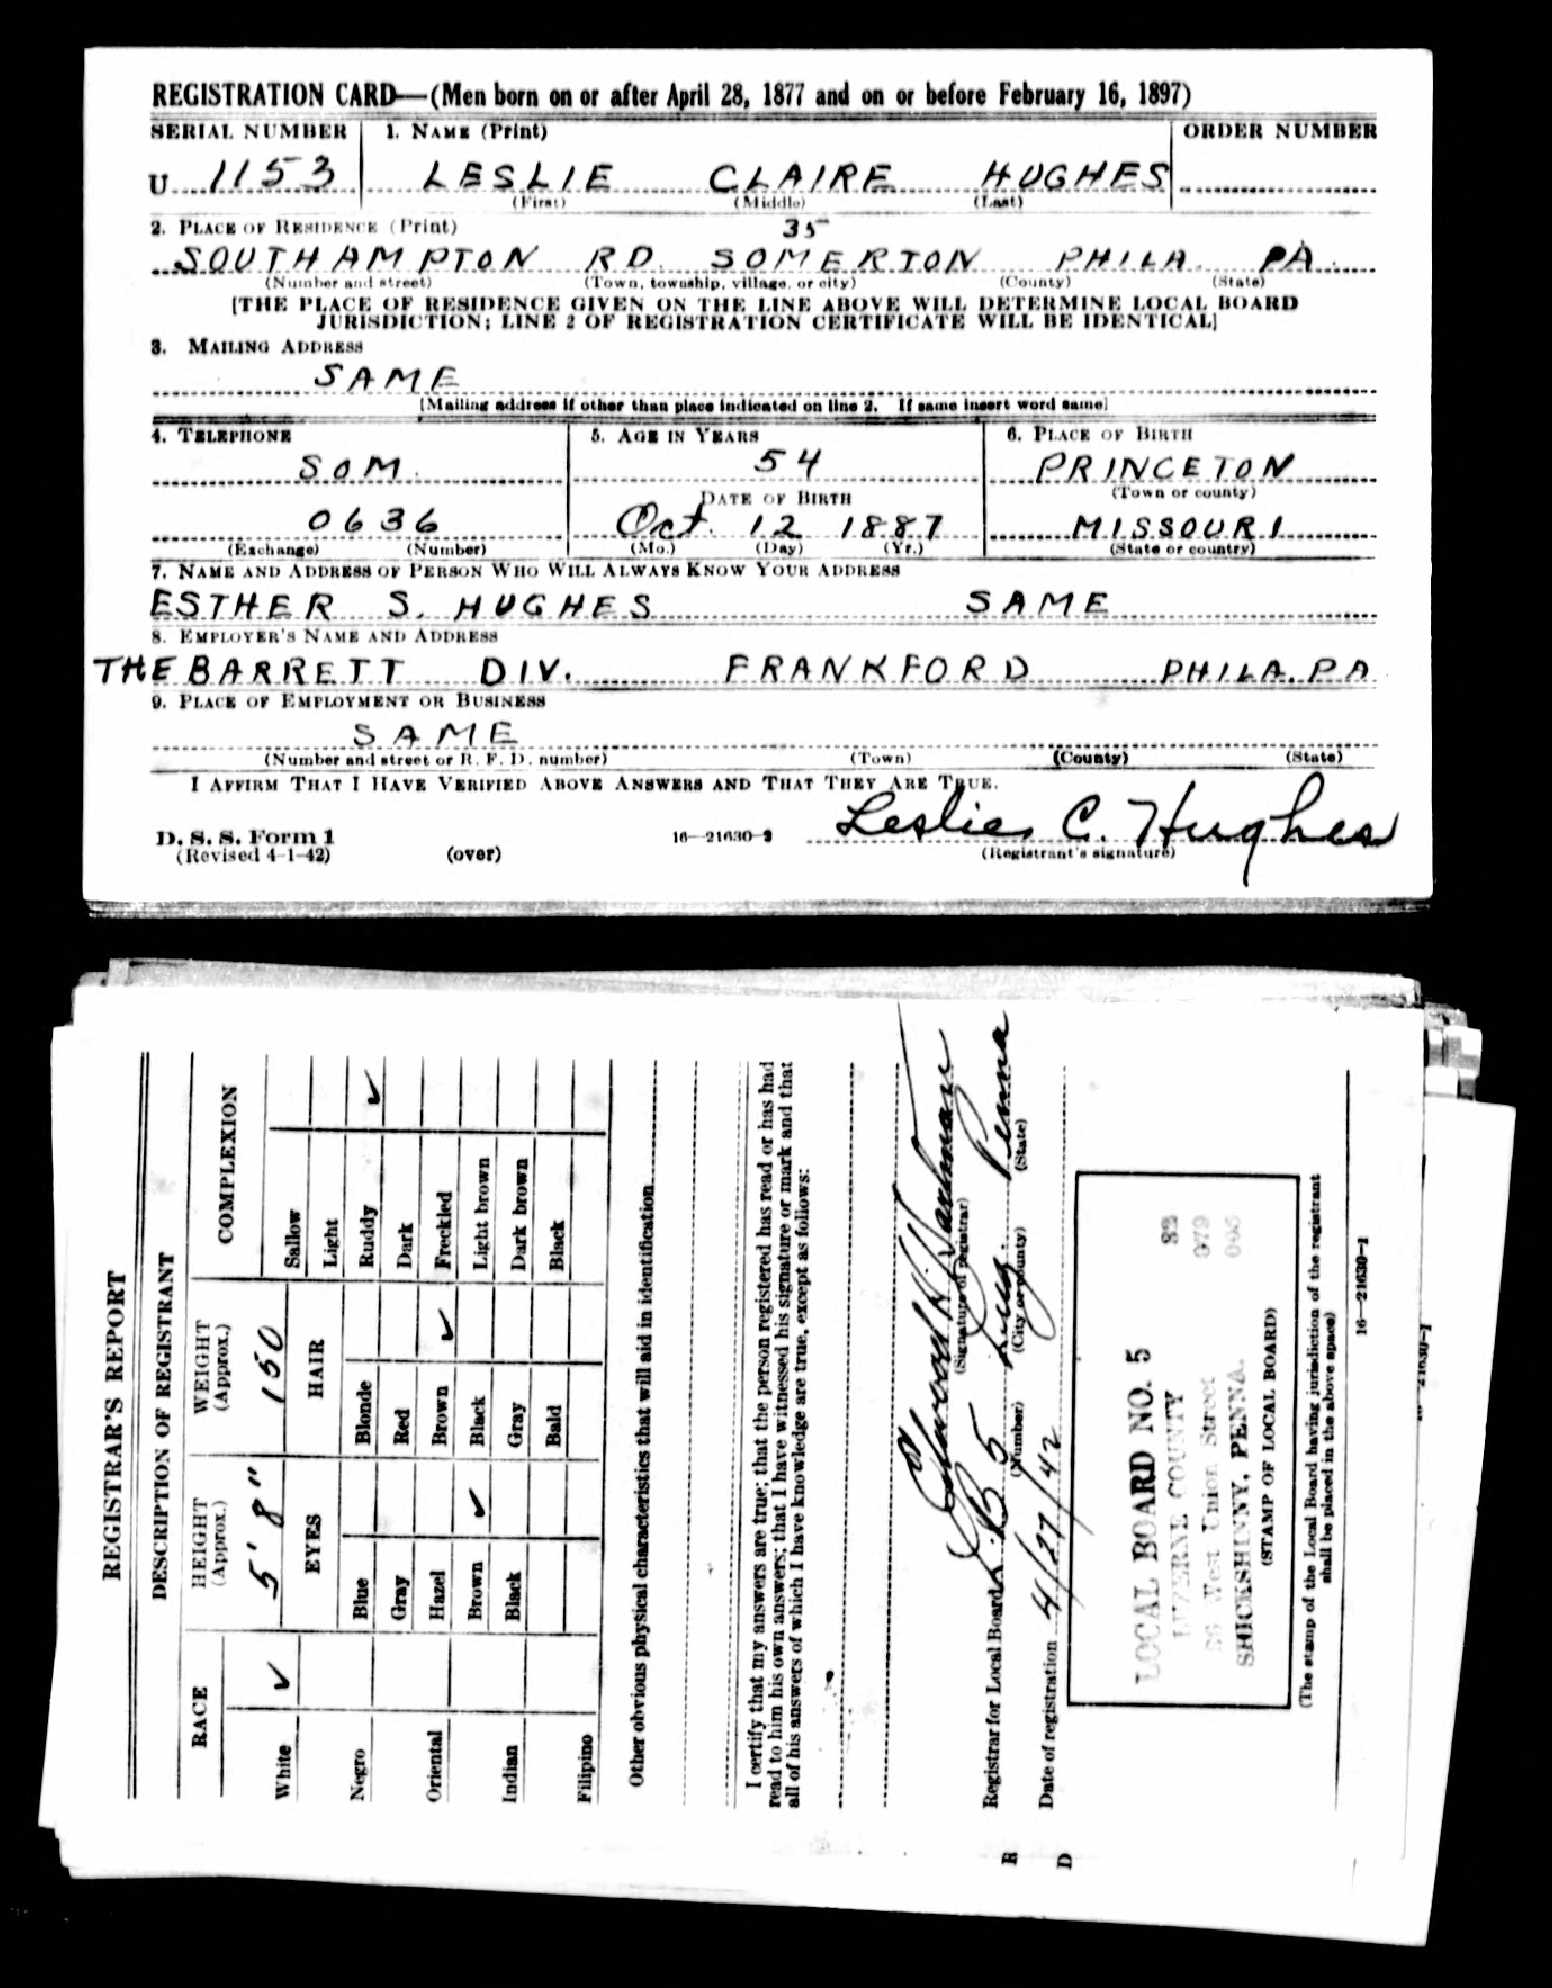 REGISTRATION CARD—(Men born on or after April 28, 1877 and on or before February 16, 1897)
SERIAL NUMBER 1. NAME (Print) ORDER NUMBER
U 1153 LESLIE CLAIRE HUGHES
(First) (Middle) (Last)
2. PLACE OF RESIDENCE (Print) 35
SOUTHAMPTON RD. SOMERTON PHILA. PA.
(Number and street) (Town, township, village, or city) (County) (State)
[THE PLACE OF RESIDENCE GIVEN ON THE LINE ABOVE WILL DETERMINE LOCAL BOARD
JURISDICTION; LINE 2 OF REGISTRATION CERTIFICATE WILL BE IDENTICAL]
3. MAILING ADDRESS
SAME
[Mailing address if other than place indicated on line 2. If same insert word same]
4. TELEPHONE 5. AGE IN YEARS 6. PLACE OF BIRTH
SOM. 54 PRINCETON
DATE OF BIRTH (Town or county)
0636 Oct. 12 1887 MISSOURI
(Exchange) (Number) (Mo.) (Day) (Yr.) (State or country)
7. NAME AND ADDRESS OF PERSON WHO WILL ALWAYS KNOW YOUR ADDRESS
ESTHER S. HUGHES SAME
8. EMPLOYER'S NAME AND ADDRESS
THE BARRETT DIV. FRANKFORD PHILA. PA
9. PLACE OF EMPLOYMENT OR BUSINESS
SAME
(Number and street or R. F. D. number) (Town) (County) (State)
I AFFIRM THAT I HAVE VERIFIED ABOVE ANSWERS AND THAT THEY ARE TRUE.
Leslie C. Hughes
D. S. S. Form 1 16—21630-2
(Revised 4-1-42) (over) (Registrant's signature)
REGISTRAR'S REPORT
DESCRIPTION OF REGISTRANT
RACE HEIGHT (Approx.) WEIGHT (Approx.) COMPLEXION
White ✓ 5' 8" 150 Sallow
EYES HAIR Light
Negro Blue Blonde Ruddy ✓
Gray Red Dark
Oriental Hazel Brown ✓ Freckled
Brown ✓ Black Light brown
Indian Black Gray Dark brown
Bald Black
Filipino
Other obvious physical characteristics that will aid in identification
I certify that my answers are true; that the person registered has read or has had
read to him his own answers; that I have witnessed his signature or mark and that
all of his answers of which I have knowledge are true, except as follows:
(Signature of registrar)
Registrar for Local Board 5 Luz. Penna
(Number) (City or county) (State)
Date of registration 4/27/42
LOCAL BOARD NO. 5 32
LUZERNE COUNTY 079
West Union Street 005
SHICKSHINNY, PENNA.
(STAMP OF LOCAL BOARD)
(The stamp of the Local Board having jurisdiction of the registrant
shall be placed in the above space)
16—21630-1
21630-1
R
D